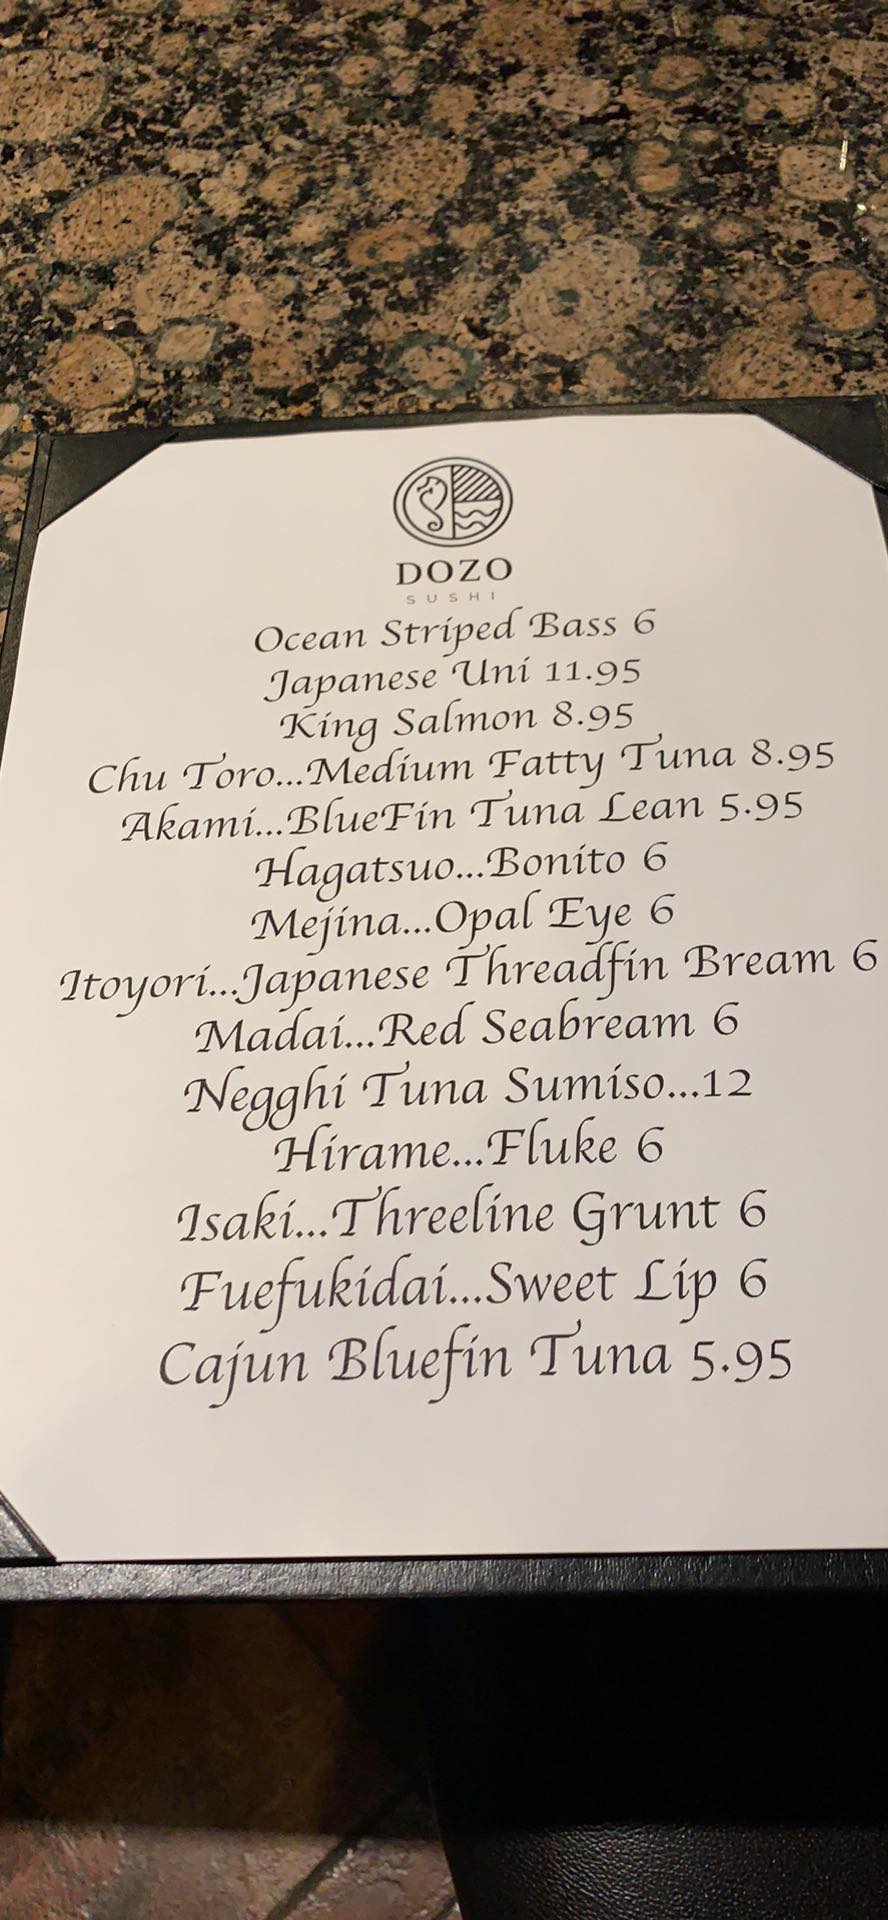 DOZO
SUSHI
Ocean Striped Bass 6
Japanese Uni 11.95
King Salmon 8.95
Chu Toro...Medium Fatty Tuna 8.95
Akami...BlueFin Tuna Lean 5.95
Hagatsuo...Bonito 6
Mejina...Opal Eye 6
Itoyori...Japanese Threadfin Bream 6
Madai...Red Seabream 6
Negghi Tuna Sumiso...12
Hirame...Fluke 6
Isaki...Threeline Grunt 6
Fuefukidai...Sweet Lip 6
Cajun Bluefin Tuna 5.95